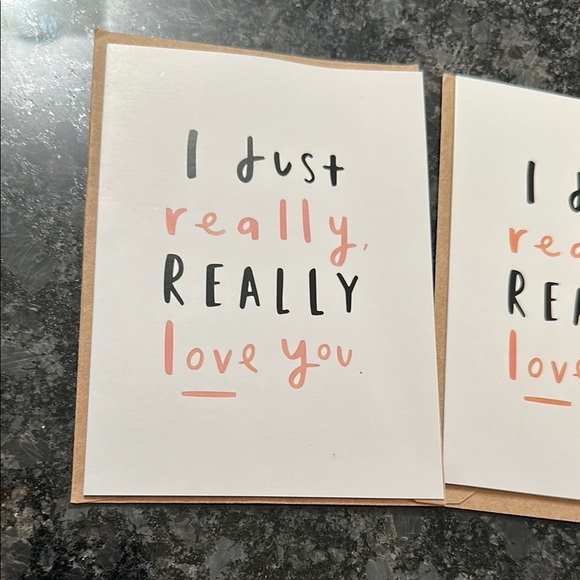 I Just
really,
REALLY
love you.
I
REA
love